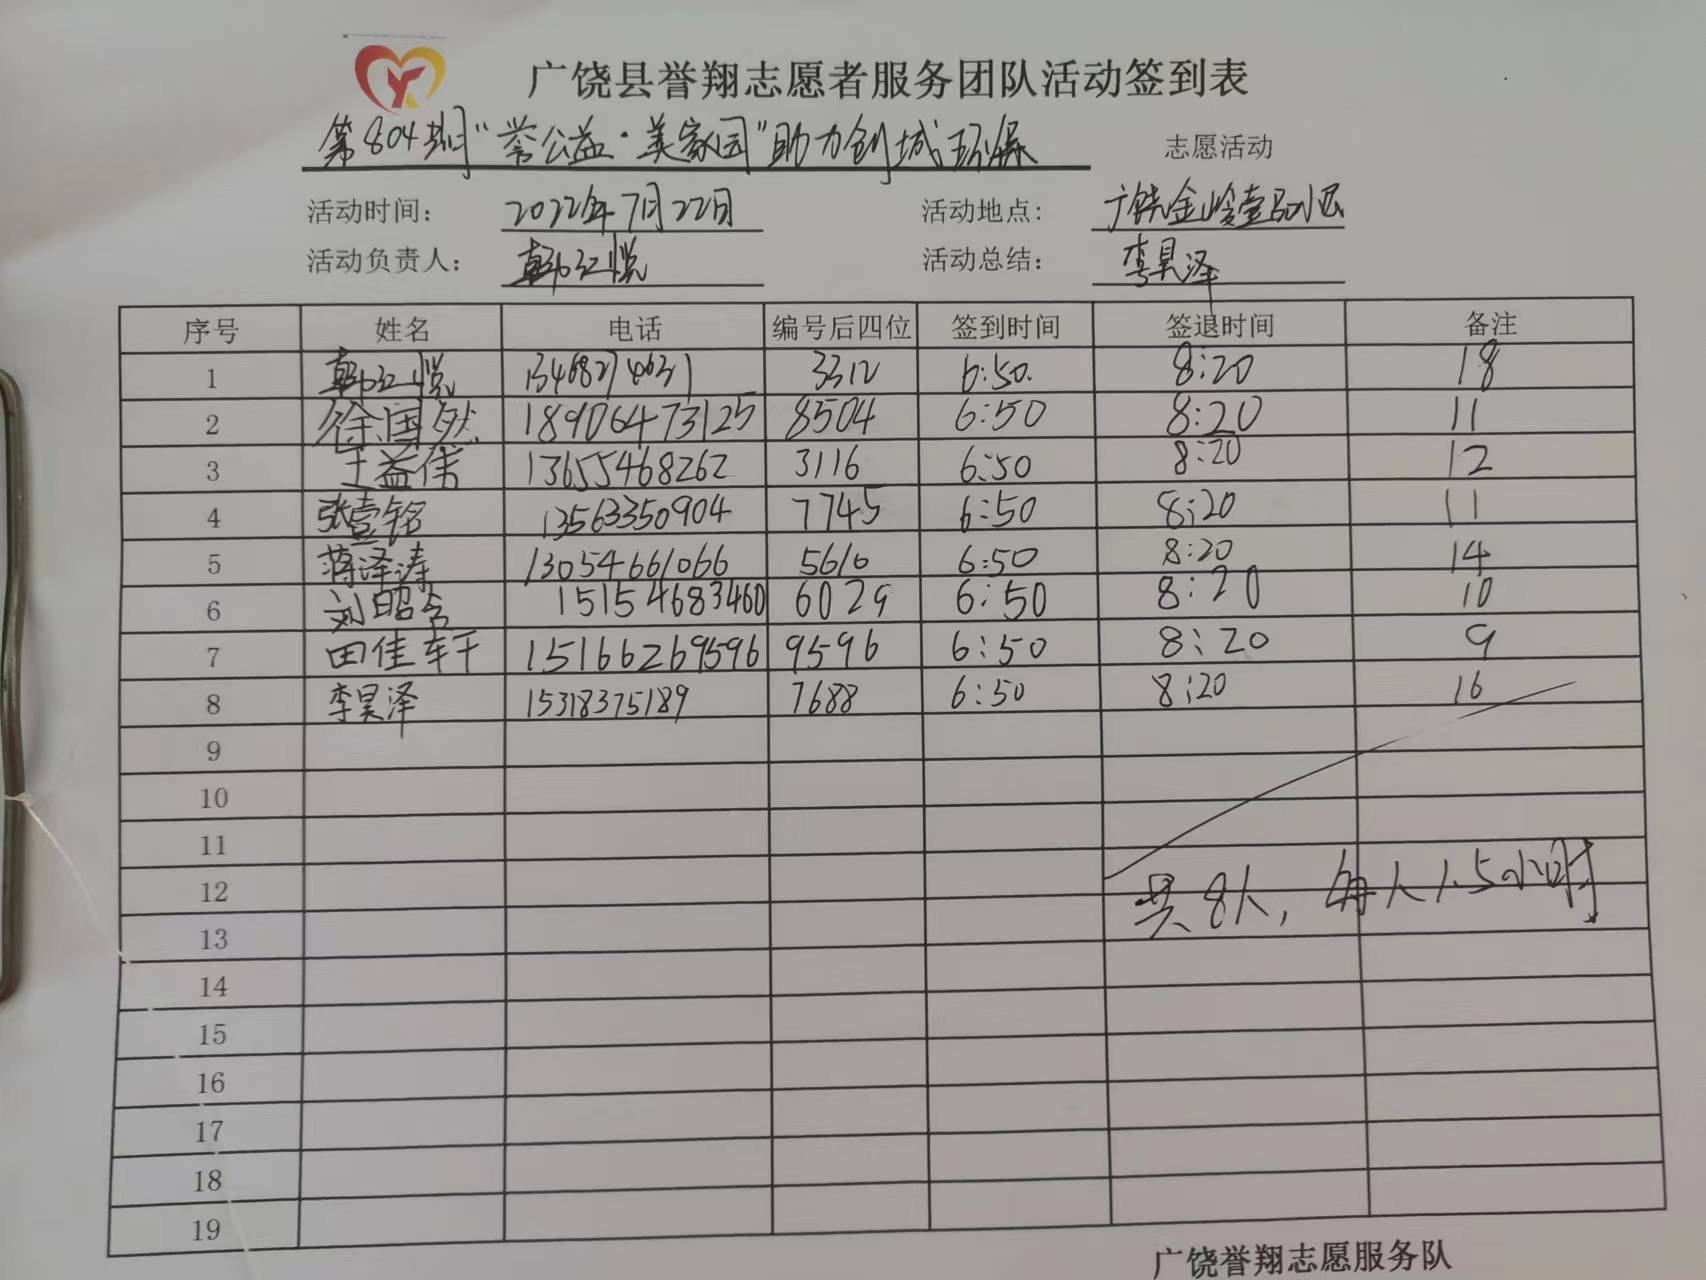 广饶县誉翔志愿者服务团队活动签到表
第804期“誉公益·美家园”助力创城环保 志愿活动
活动时间： 2022年7月22日 活动地点： 广饶金岭壹号小区
活动负责人： 韩红悦 活动总结： 李昊泽
序号 姓名 电话 编号后四位 签到时间 签退时间 备注
1 韩红悦 13468274631 3312 6:50. 8:20 18
2 徐国然 18906473125 8504 6:50 8:20 11
3 王益伟 13655468262 3116 6:50 8:20 12
4 张壹铭 13563350904 7745 6:50 8:20 11
5 蒋泽涛 13054661066 5610 6:50 8:20 14
6 刘昭含 15154683460 6029 6:50 8:20 10
7 田佳轩 15166269596 9596 6:50 8:20 9
8 李昊泽 15318375189 7688 6:50 8:20 16
9
10
11
12 共8人，每人1.5小时
13
14
15
16
17
18
19
广饶誉翔志愿服务队